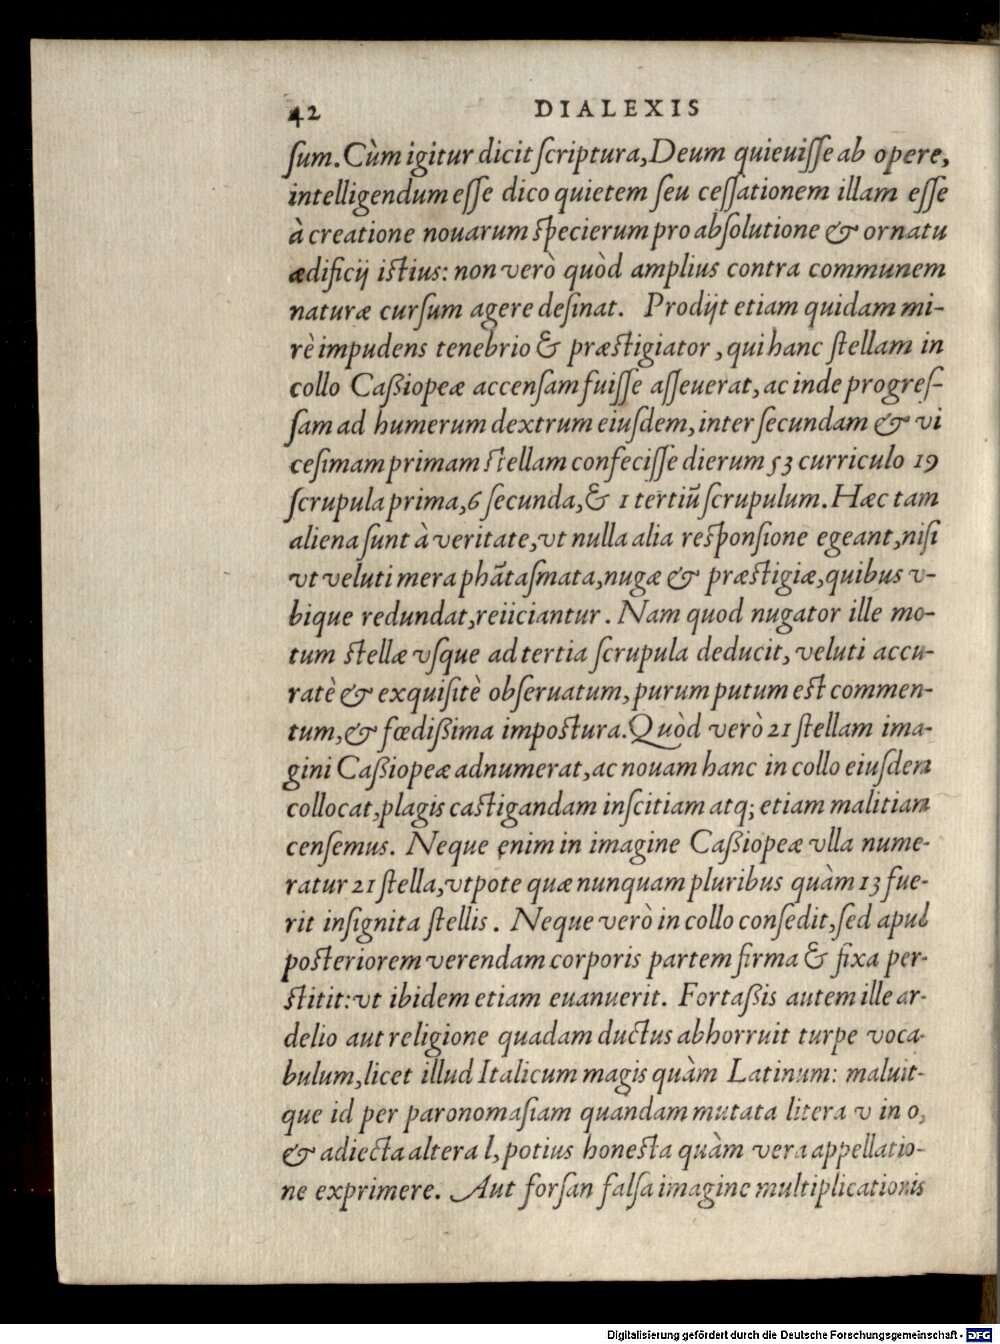 42 DIALEXIS
ſum. Cùm igitur dicit ſcriptura, Deum quieuiſſe ab opere,
intelligendum eſſe dico quietem ſeu ceſſationem illam eſſe
à creatione nouarum ſpecierum pro abſolutione & ornatu
ædificij iſtius: non verò quòd amplius contra communem
naturæ curſum agere deſinat. Prodijt etiam quidam mi-
rè impudens tenebrio & præſtigiator, qui hanc ſtellam in
collo Caßiopeæ accenſam fuiſſe aſſeuerat, ac inde progreſ-
ſam ad humerum dextrum eiuſdem, inter ſecundam & vi
ceſimam primam ſtellam confeciſſe dierum 53 curriculo 19
ſcrupula prima, 6 ſecunda, & 1 tertiũ ſcrupulum. Hæc tam
aliena ſunt à veritate, vt nulla alia reſponſione egeant, niſi
vt veluti mera phãtaſmata, nugæ & præſtigiæ, quibus v-
bique redundat, reiiciantur. Nam quod nugator ille mo-
tum ſtellæ vſque ad tertia ſcrupula deducit, veluti accu-
ratè & exquiſitè obſeruatum, purum putum eſt commen-
tum, & fœdißima impoſtura. Quòd verò 21 ſtellam ima-
gini Caßiopeæ adnumerat, ac nouam hanc in collo eiuſdem
collocat, plagis caſtigandam inſcitiam atq; etiam malitiam
cenſemus. Neque enim in imagine Caßiopeæ vlla nume-
ratur 21 ſtella, vtpote quæ nunquam pluribus quàm 13 fue-
rit inſignita ſtellis. Neque verò in collo conſedit, ſed apud
poſteriorem verendam corporis partem firma & fixa per-
ſtitit: vt ibidem etiam euanuerit. Fortaßis autem ille ar-
delio aut religione quadam ductus abhorruit turpe voca-
bulum, licet illud Italicum magis quàm Latinum: maluit-
que id per paronomaſiam quandam mutata litera v in o,
& adiecta altera l, potius honeſta quàm vera appellatio-
ne exprimere. Aut forſan falſa imagine multiplicationis
Digitalisierung gefördert durch die Deutsche Forschungsgemeinschaft - DFG